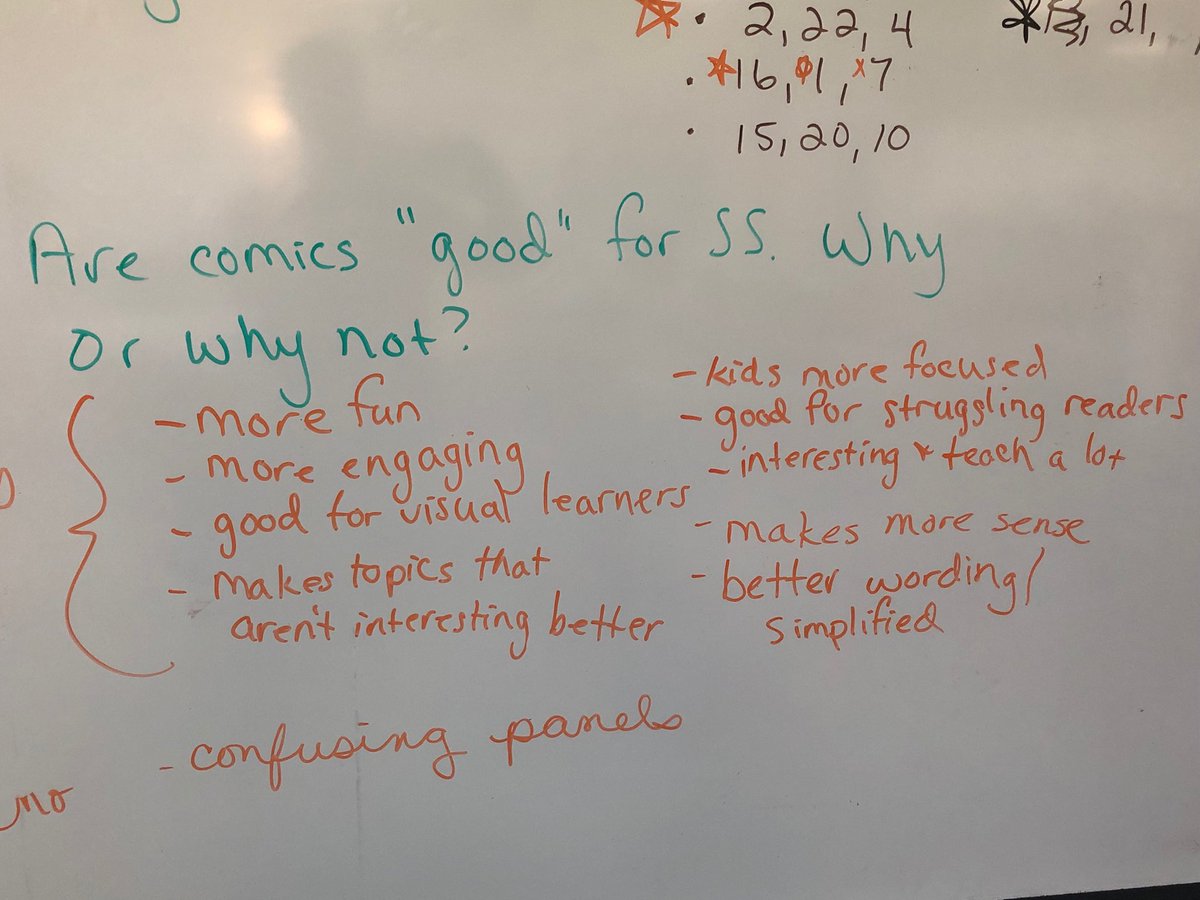 • 2, 22, 4
21,
• 16, 1, 7
• 15, 20, 10
Are comics "good" for SS. Why
or why not?
- more fun
- more engaging
- good for visual learners
- makes topics that
aren't interesting better
- kids more focused
- good for struggling readers
- interesting & teach a lot
- makes more sense
- better wording/
simplified
- confusing panels
no